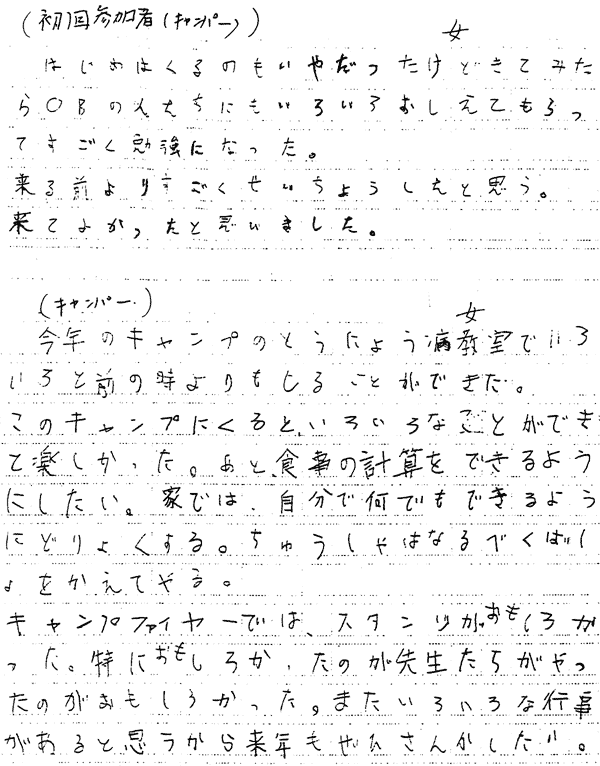 (初回参加者(キャンパー))
女
はじめはくるのもいやだったけどきてみた
らOBの人たちにもいろいろおしえてもらっ
てすごく勉強になった。
来る前よりすごくせいちょうしたと思う。
来てよかったと思いました。
(キャンパー)
女
今年のキャンプのとうにょう病教室でいろ
いろと前の時よりもしることができた。
このキャンプにくると、いろいろなことができ
て楽しかった。あと、食事の計算をできるよう
にしたい。家では、自分で何でもできるよう
にどりょくする。ちゅうしゃはなるべくばし
ょをかえてやる。
キャンプファイヤーでは、スタンツがおもしろか
った。特におもしろかったのが先生たちがやっ
たのがおもしろかった。またいろいろな行事
があると思うから来年もぜひさんかしたい。